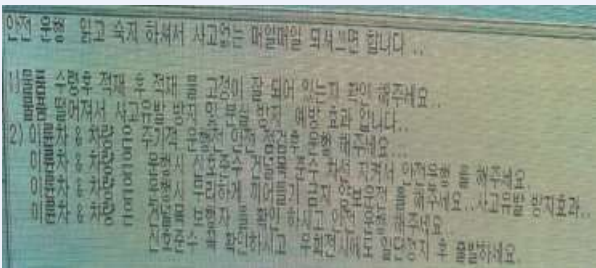 안전 운행 일고 숙지 하셔서 사고없는 매일매일 되셔으면 합니다 ..
1)물품 수령후 적재 후 적재 물 고정이 잘 되어 있는지 확인 해주세요 ..
물품 떨어져서 사고유발 방지 및 분실 방지 예방 효과 입니다..
2) 이륜차 & 차량은 주기적 운행전 안전 점검후 운행 해주세요...
이륜차 & 차량은 운행시 신호준수 건널목준수 차선 지켜서 안전운행 를 해주세요.
이륜차 & 차량은 운행시 무리하게 끼어들기 금지 양보운전 를 해주세요..사고유발 방지효과..
이륜차 & 차량은 건널목 보행자 를 확인 하시고 안전 운행 해주세요..
신호준수 꼭 확인하시고 우회전시에도 일단정지 후 출발하세요.